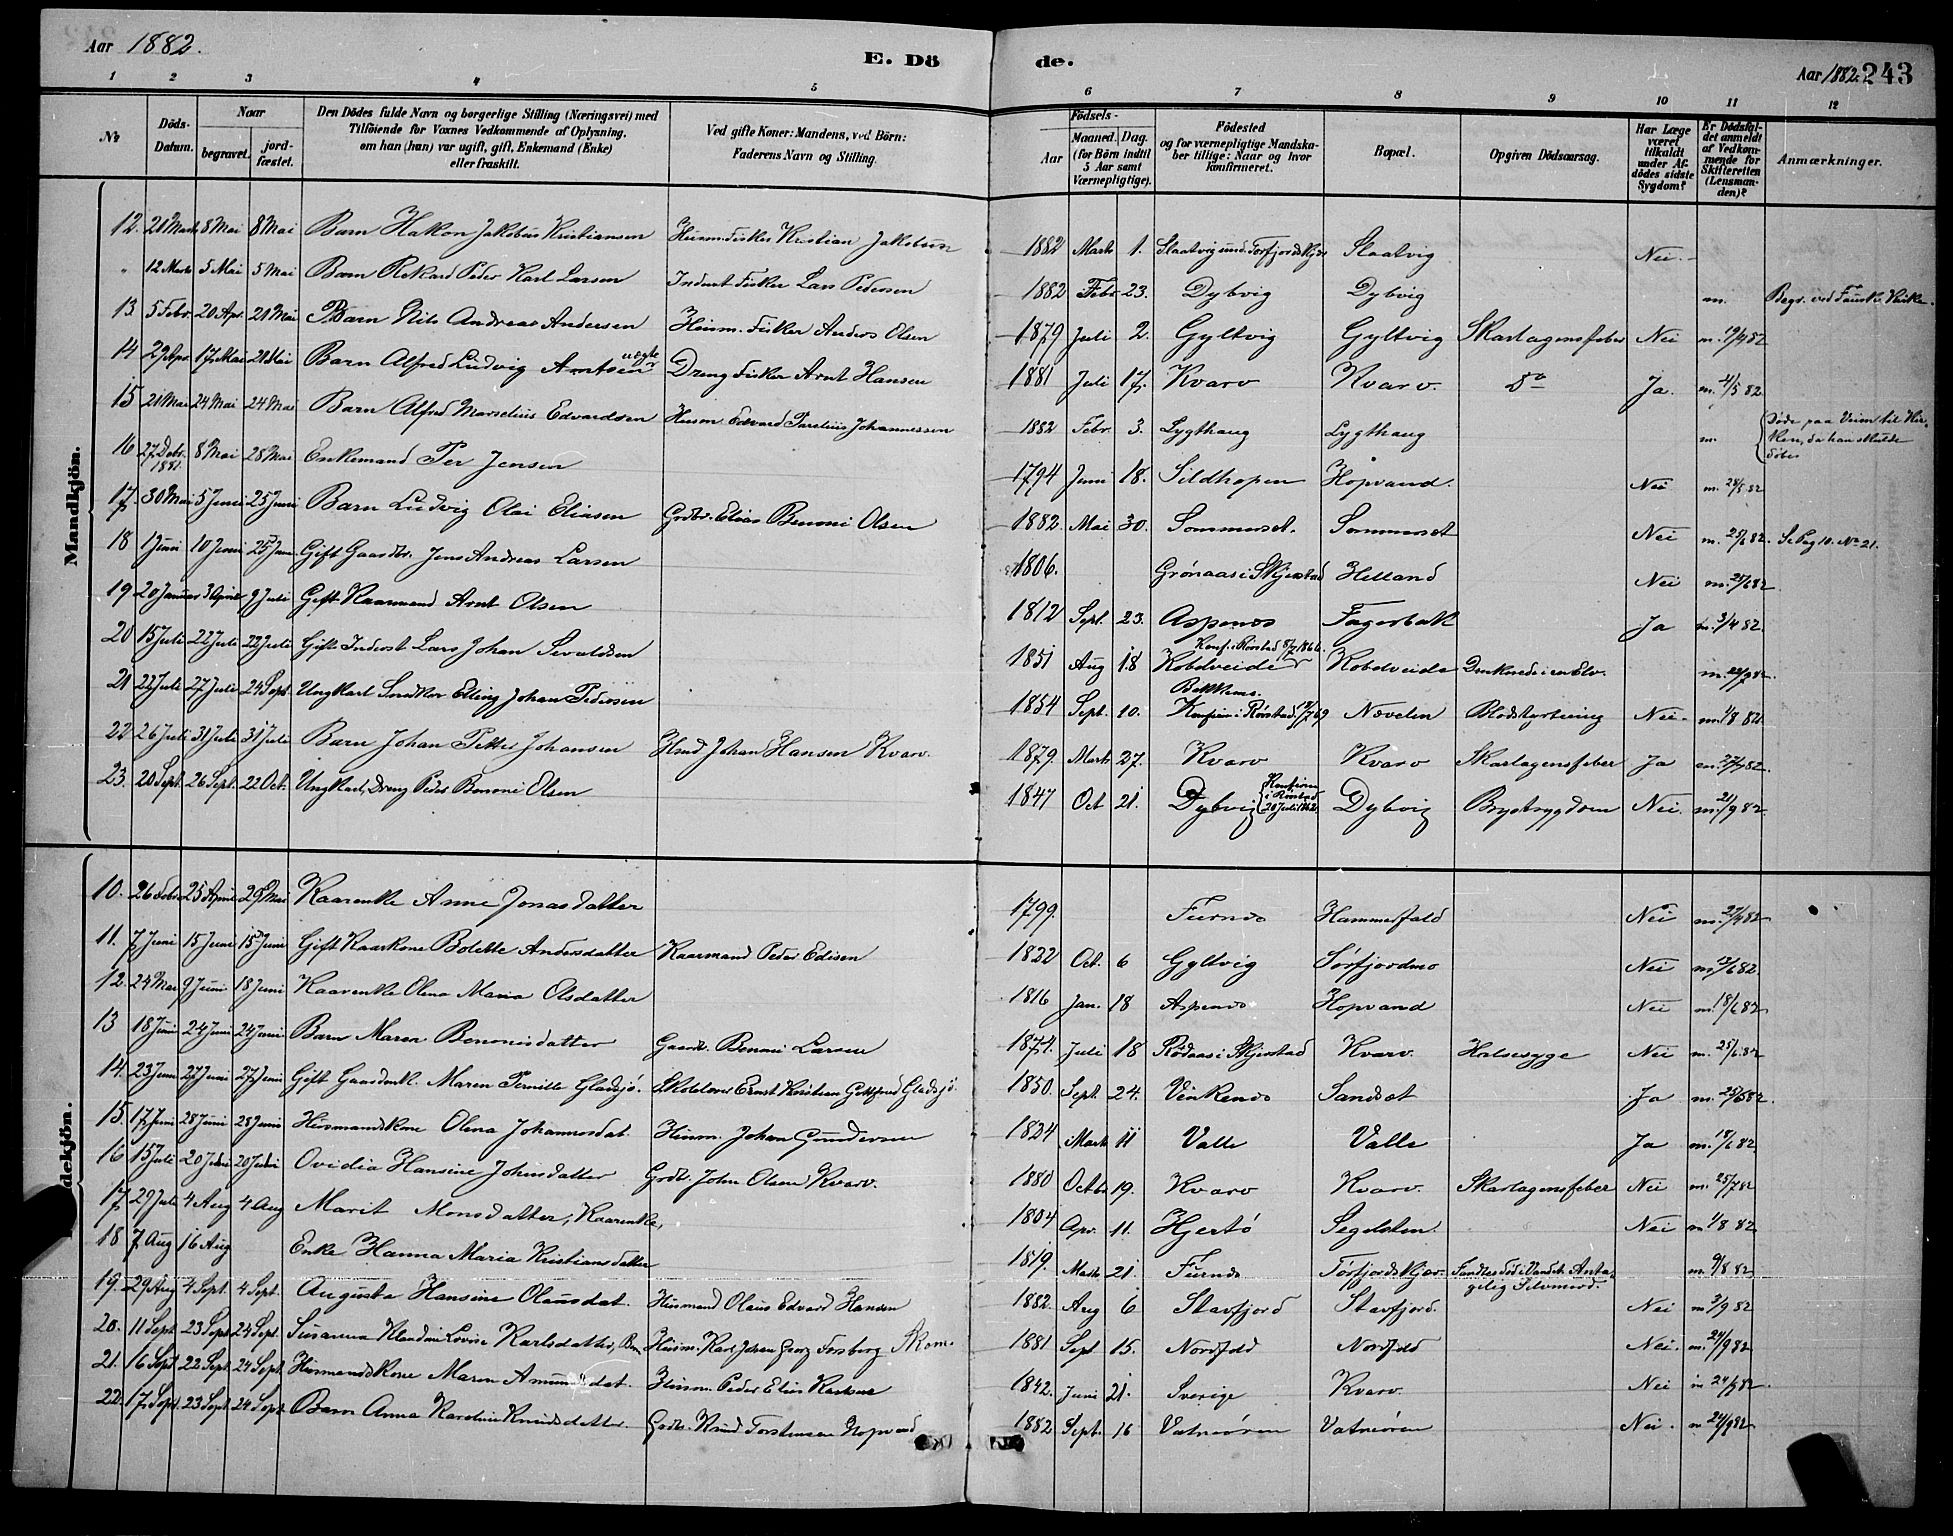 Aar 1882.
E. Dö
de.
Aar 1882. 243
1 2 3 4 5 6 7 8 9 10 11 12
№
Döds-
Datum.
Naar
begravet.
jord-
fæstet.
Den Dödes fulde Navn og borgerlige Stilling (Næringsvei) med
Tilföiende for Voxnes Vedkommende af Oplysning,
om han (hun) var ugift, gift, Enkemand (Enke)
eller fraskilt.
Ved gifte Koner: Mandens, ved Börn:
Faderens Navn og Stilling.
Födsels-
Aar
Maaned. Dag.
(for Börn indtil
5 Aar samt
Værnepligtige).
Födested
og for værnepligtige Mandska-
ber tillige: Naar og hvor
konfirmeret.
Bopæl.
Opgiven Dödsaarsag.
Har Læge
været
tilkaldt
under Af-
dödes sidste
Sygdom?
Er Dödsfal-
det anmeldt
af Vedkom-
mende for
Skifteretten
(Lensman-
den)?
Anmærkninger.
Mandkjön.
12. 21 Marts 8 Mai 8 Mai Barn Hakon Jakobus Kristiansen Husm. Fisker Kristian Jakobsen 1882 Marts 1. Slaatvig Slaatvig Nei.
" 12 Marts 5 Mai 5 Mai Barn Rikard Peder Karl Larsen Inderst Fisker Lars Pedersen 1882 Febr 23. Dybvig Dybvig m. Begr. ved Fauske Kirke.
13 5 Febr. 20 Apr. 21 Mai Barn Nils Andreas Andersen Husm. Fisker Anders Olsen 1879 Juli 2. Gyltvig Gyltvig Skarlagensfeber Nei m. 19/4 82
14 29 Apr. 17 Mai 21 Mai Barn Alfred Ludvig Arntsen uægte Dreng Fisker Arnt Hansen 1881 Juli 17. Kvarv Kvarv. Do Ja. m. 11/5 82
15 21 Mai 24 Mai 24 Mai Barn Alfred Marselius Edvardsen Husm Edvard Parelius Johannessen 1882 Febr. 3. Lygthaug Lygthaug m. Døde paa Veien til Kir-
ken, da han skulde
døbes
16 27 Debr. 1881. 8 Mai 28 Mai Enkemand Per Jensen 1794 Juni 18. Sildhopen Hopvand. Nei m. 28/5 82
17. 30 Mai 5 Juni 25 Juni Barn Ludvig Olai Eliasen Grdbr. Elias Benoni Olsen 1882. Mai 30. Sommerset. Sommerset Nei m. 25/6 82. Se Pag 10. No 21.
18 1 Juni 10 Juni 25 Juni Gift Gaardbr. Jens Andreas Larsen 1806. Grønaas i Skjerstad Helland Nei m. 25/6 82
19 20 Januar 3 April 9 Juli Gift Kaarmand Arnt Olsen 1812 Sept. 23. Aspenes Fagerbak Ja m. 3/4 82.
20 15 Juli 22 Juli 22 Juli Gift Inderst Lars Johan Sevaldsen 1851 Aug 18 Kobelveide Konf. i Rørstad 8/7 1866 Kobelveide Druknede i en Elv. m. 22/7 82.
21 22 Juli 27 Juli 24 Sept. Ungkarl Snedker Elling Johan Pedersen 1854 Sept. 10. Konfirm. i Rørstad Nævelen Blodstyrtning Nei. m. 1/8 82
22 26 Juli 31 Juli 31 Juli Barn Johan Petter Johansen Hmd Johan Hansen Kvarv. 1879. Marts 27. Kvarv Kvarv Skarlagensfeber Ja m. 27/7 82.
23. 20 Sept. 26 Sept. 22 Oct. Ungkarl, Dreng Peder Benoni Olsen 1847 Oct 21. Dybvig Konfirm. i Rørstad 20 Juli 1862 Dybvig Brystsygdom Nei. m. 21/9 82
dekjön.
10. 26 Febr 25 April 29 Mai Kaarenke Anne Jonasdatter 1799. Furnes Hammerfald Nei m. 25/4 82
11. 7 Juni 15 Juni 15 Juni Gift Kaarkone Bolette Andersdatter Kaarmand Peder Edisen 1822 Oct. 6 Gyltvig Sørfjordmo Nei m. 13/6 82
12. 24 Mai 9 Juni 18 Juni Kaarenke Olena Maria Olsdatter 1816 Jan. 18 Aspenes Hopvand Nei m. 18/6 82
13 18 Juni 24 Juni 24 Juni Barn Maren Benonisdatter Gaardb. Benoni Larsen 1874. Juli 18 Rødaas i Skjerstad Kvarv. Halssyge Nei m. 25/6 82
14. 23 Juni 27 Juni 27 Juni Gift Gaardmk. Maren Pernille Gladsjø. Skolelærer Ernst Kristian Gottfred Gladsjø. 1850. Sept. 24. Vinkenes Sandset Ja m. 25/6 82.
15. 17 Juni 28 Juni 28 Juni Husmandskone Olena Johannesdat. Husm. Johan Gundersen 1824 Marts 11 Valle Valle Ja m. 18/6 82
16 15 Juli 20 Juli 20 Juli Ovidia Hansine Johnsdatter Grdb. John Olsen Kvarv. 1880 Octbr 19. Kvarv Kvarv. Skarlagensfeber Nei m. 25/7 82
17. 29 Juli 4 Aug 4 Aug Marit Monsdatter, Kaarenke, 1804 Apr. 11. Hjertø Segelsten Nei m. 1/8 82
18 7 Aug 16 Aug Enke Hanna Maria Kristiansdatter 1819. Marts 21. Furnes Tørfjordskjær Fandtes død i Vandet. Anta-
gelig Selvmord. m. 9/8 82
19. 29 Aug 4 Sept. 4 Sept. Augusta Hansine Olausdat. Husmand Olaus Edvard Hansen 1882. Aug 6 Stavfjord Stavfjord. Nei m. 3/9 82
20. 11 Sept. 23 Sept 24 Sept. Susanna Klaudine Lovise Karlsdatter, Barn Husm. Karl Johan Georg Forsberg Skom. 1881 Sept 15. Nordfold Nordfold Nei. m. 24/9 82
21. 16 Sept 22 Sept. 24 Sept. Husmandskone Maren Amundsdat. Husm. Peder Elias 1842. Juni 21. Sverige Kvarv. Nei m 24/9 82.
22. 17 Sept. 23 Sept. 24 Sept. Barn Anna Karoline Knudsdatter Grdb. Knud Torstensen Hopvand 1882 Sept. 16 Vatneøren Vatneøren Nei. m 24/9 82